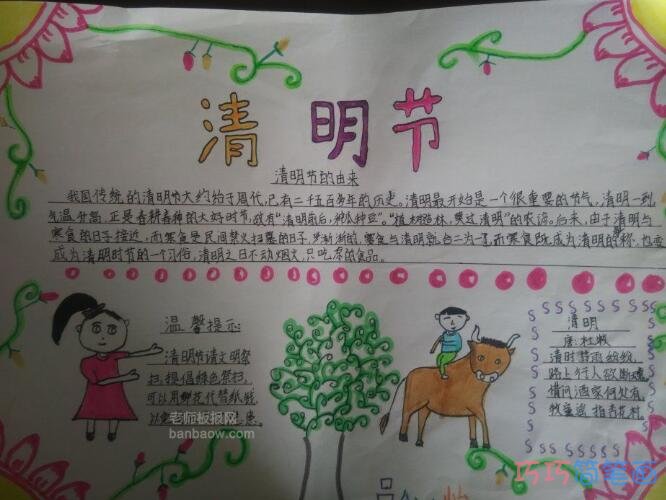 清明节
清明节的由来
我国传统的清明节大约始于周代,已有二千五百多年的历史。清明最开始是一个很重要的节气,清明一到
气温升高,正是春耕春种的大好时节,故有“清明前后,种瓜种豆”。“植树造林,莫过清明”的农谚。后来,由于清明与
寒食的日子接近,而寒食是民间禁火扫墓的日子,渐渐的,寒食与清明就合二为一了,而寒食既成为清明的别称,也变
成为清明时节的一个习俗,清明之日不动烟火,只吃凉的食品。
温馨提示
清明节请文明祭
扫,提倡绿色祭扫,
可以用鲜花代替纸钱,
以免
老师板报网
banbaow.com
清明
唐 杜牧
清时节雨纷纷,
路上行人欲断魂
借问酒家何处有,
牧童遥指杏花村
巧巧简笔画